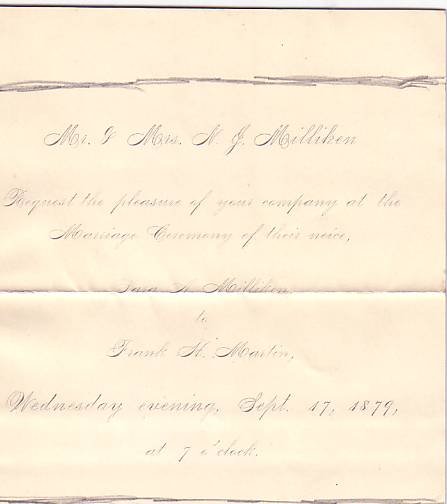 Mr. & Mrs. N. J. Milliken
Request the pleasure of your company at the
Marriage Ceremony of their neice,
Sara A. Milliken
to
Frank H. Martin,
Wednesday evening, Sept. 17, 1879,
at 7 o'clock.